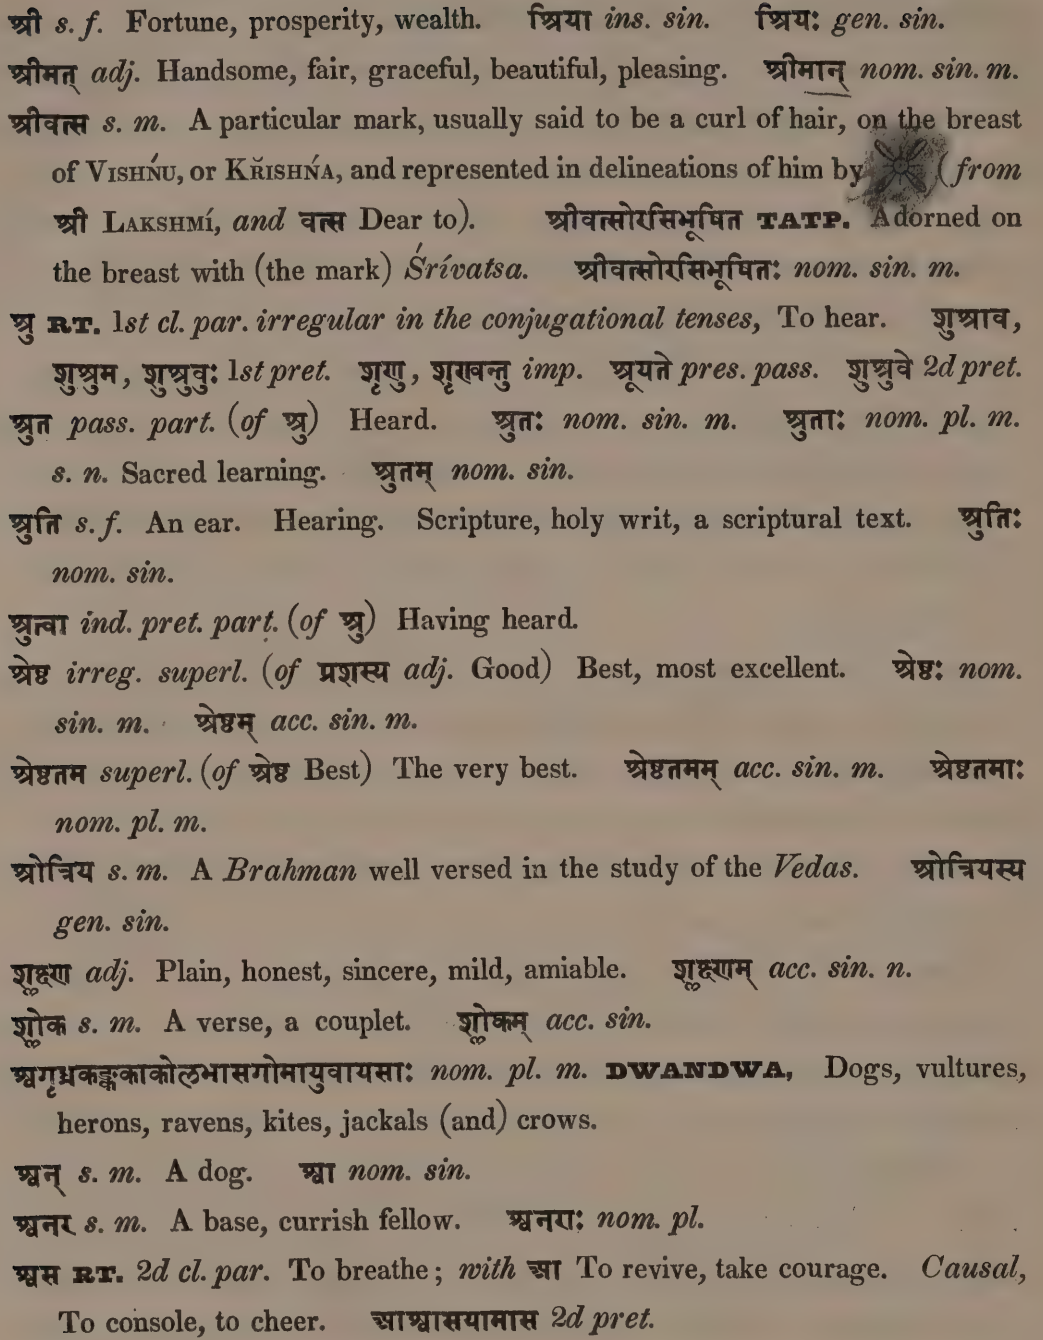 श्री s. f. Fortune, prosperity, wealth. श्रिया ins. sin. श्रियः gen. sin.
श्रीमत् adj. Handsome, fair, graceful, beautiful, pleasing. श्रीमान् nom. sin. m.
श्रीवत्स s. m. A particular mark, usually said to be a curl of hair, on the breast
of VISHŃU, or KR̆ISHŃA, and represented in delineations of him by (from
श्री LAKSHMÍ, and वत्स Dear to). श्रीवत्सोरसिभूषित TATP. Adorned on
the breast with (the mark) Śrívatsa. श्रीवत्सोरसिभूषितः nom. sin. m.
श्रु RT. 1st cl. par. irregular in the conjugational tenses, To hear. शुश्राव,
शुश्रुम, शुश्रुवुः 1st pret. शृणु, शृण्वन्तु imp. श्रूयते pres. pass. शुश्रुवे 2d pret.
श्रुत pass. part. (of श्रु) Heard. श्रुतः nom. sin. m. श्रुताः nom. pl. m.
s. n. Sacred learning. श्रुतम् nom. sin.
श्रुति s. f. An ear. Hearing. Scripture, holy writ, a scriptural text. श्रुतिः
nom. sin.
श्रुत्वा ind. pret. part. (of श्रु) Having heard.
श्रेष्ठ irreg. superl. (of प्रशस्य adj. Good) Best, most excellent. श्रेष्ठः nom.
sin. m. श्रेष्ठम् acc. sin. m.
श्रेष्ठतम superl. (of श्रेष्ठ Best) The very best. श्रेष्ठतमम् acc. sin. m. श्रेष्ठतमाः
nom. pl. m.
श्रोत्रिय s. m. A Brahman well versed in the study of the Vedas. श्रोत्रियस्य
gen. sin.
श्लक्ष्ण adj. Plain, honest, sincere, mild, amiable. श्लक्ष्णम् acc. sin. n.
श्लोक s. m. A verse, a couplet. श्लोकम् acc. sin.
श्वगृध्रकङ्ककाकोलभासगोमायुवायसाः nom. pl. m. DWANDWA, Dogs, vultures,
herons, ravens, kites, jackals (and) crows.
श्वन् s. m. A dog. श्वा nom. sin.
श्वनर s. m. A base, currish fellow. श्वनराः nom. pl.
श्वस RT. 2d cl. par. To breathe; with आ To revive, take courage. Causal,
To console, to cheer. आश्वासयामास 2d pret.